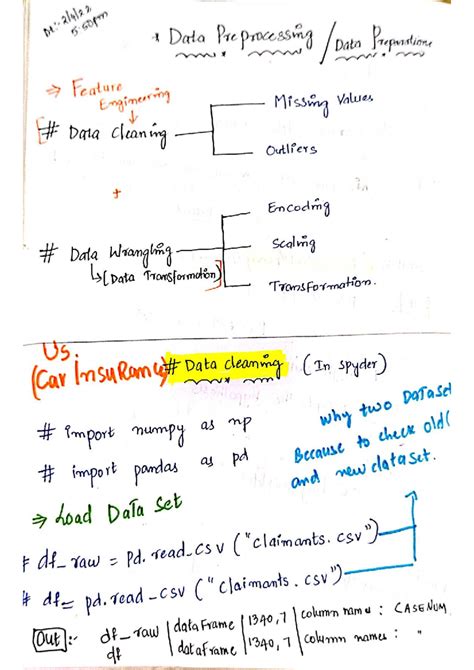 Dt:- 2/4/22
5:50pm
* Data Preprocessing / Data Preparation
⇒ Feature Engineering
[# Data Cleaning
Missing Values
Outliers
+
# Data Wrangling
↳ [Data Transformation]
Encoding
Scaling
Transformation.
Us.
(Car Insurance)
# Data cleaning (In spyder)
# import numpy as np
# import pandas as pd
why two Dataset
Because to check old(
and new dataset.
⇒ Load Data Set
# df_raw = pd.read_csv ("claimants.csv")
# df = pd.read_csv ("claimants.csv")
Out :- df_raw | dataframe | 1340,7 | column names : CASENUM,
df | dataframe | 1340,7 | column names : "